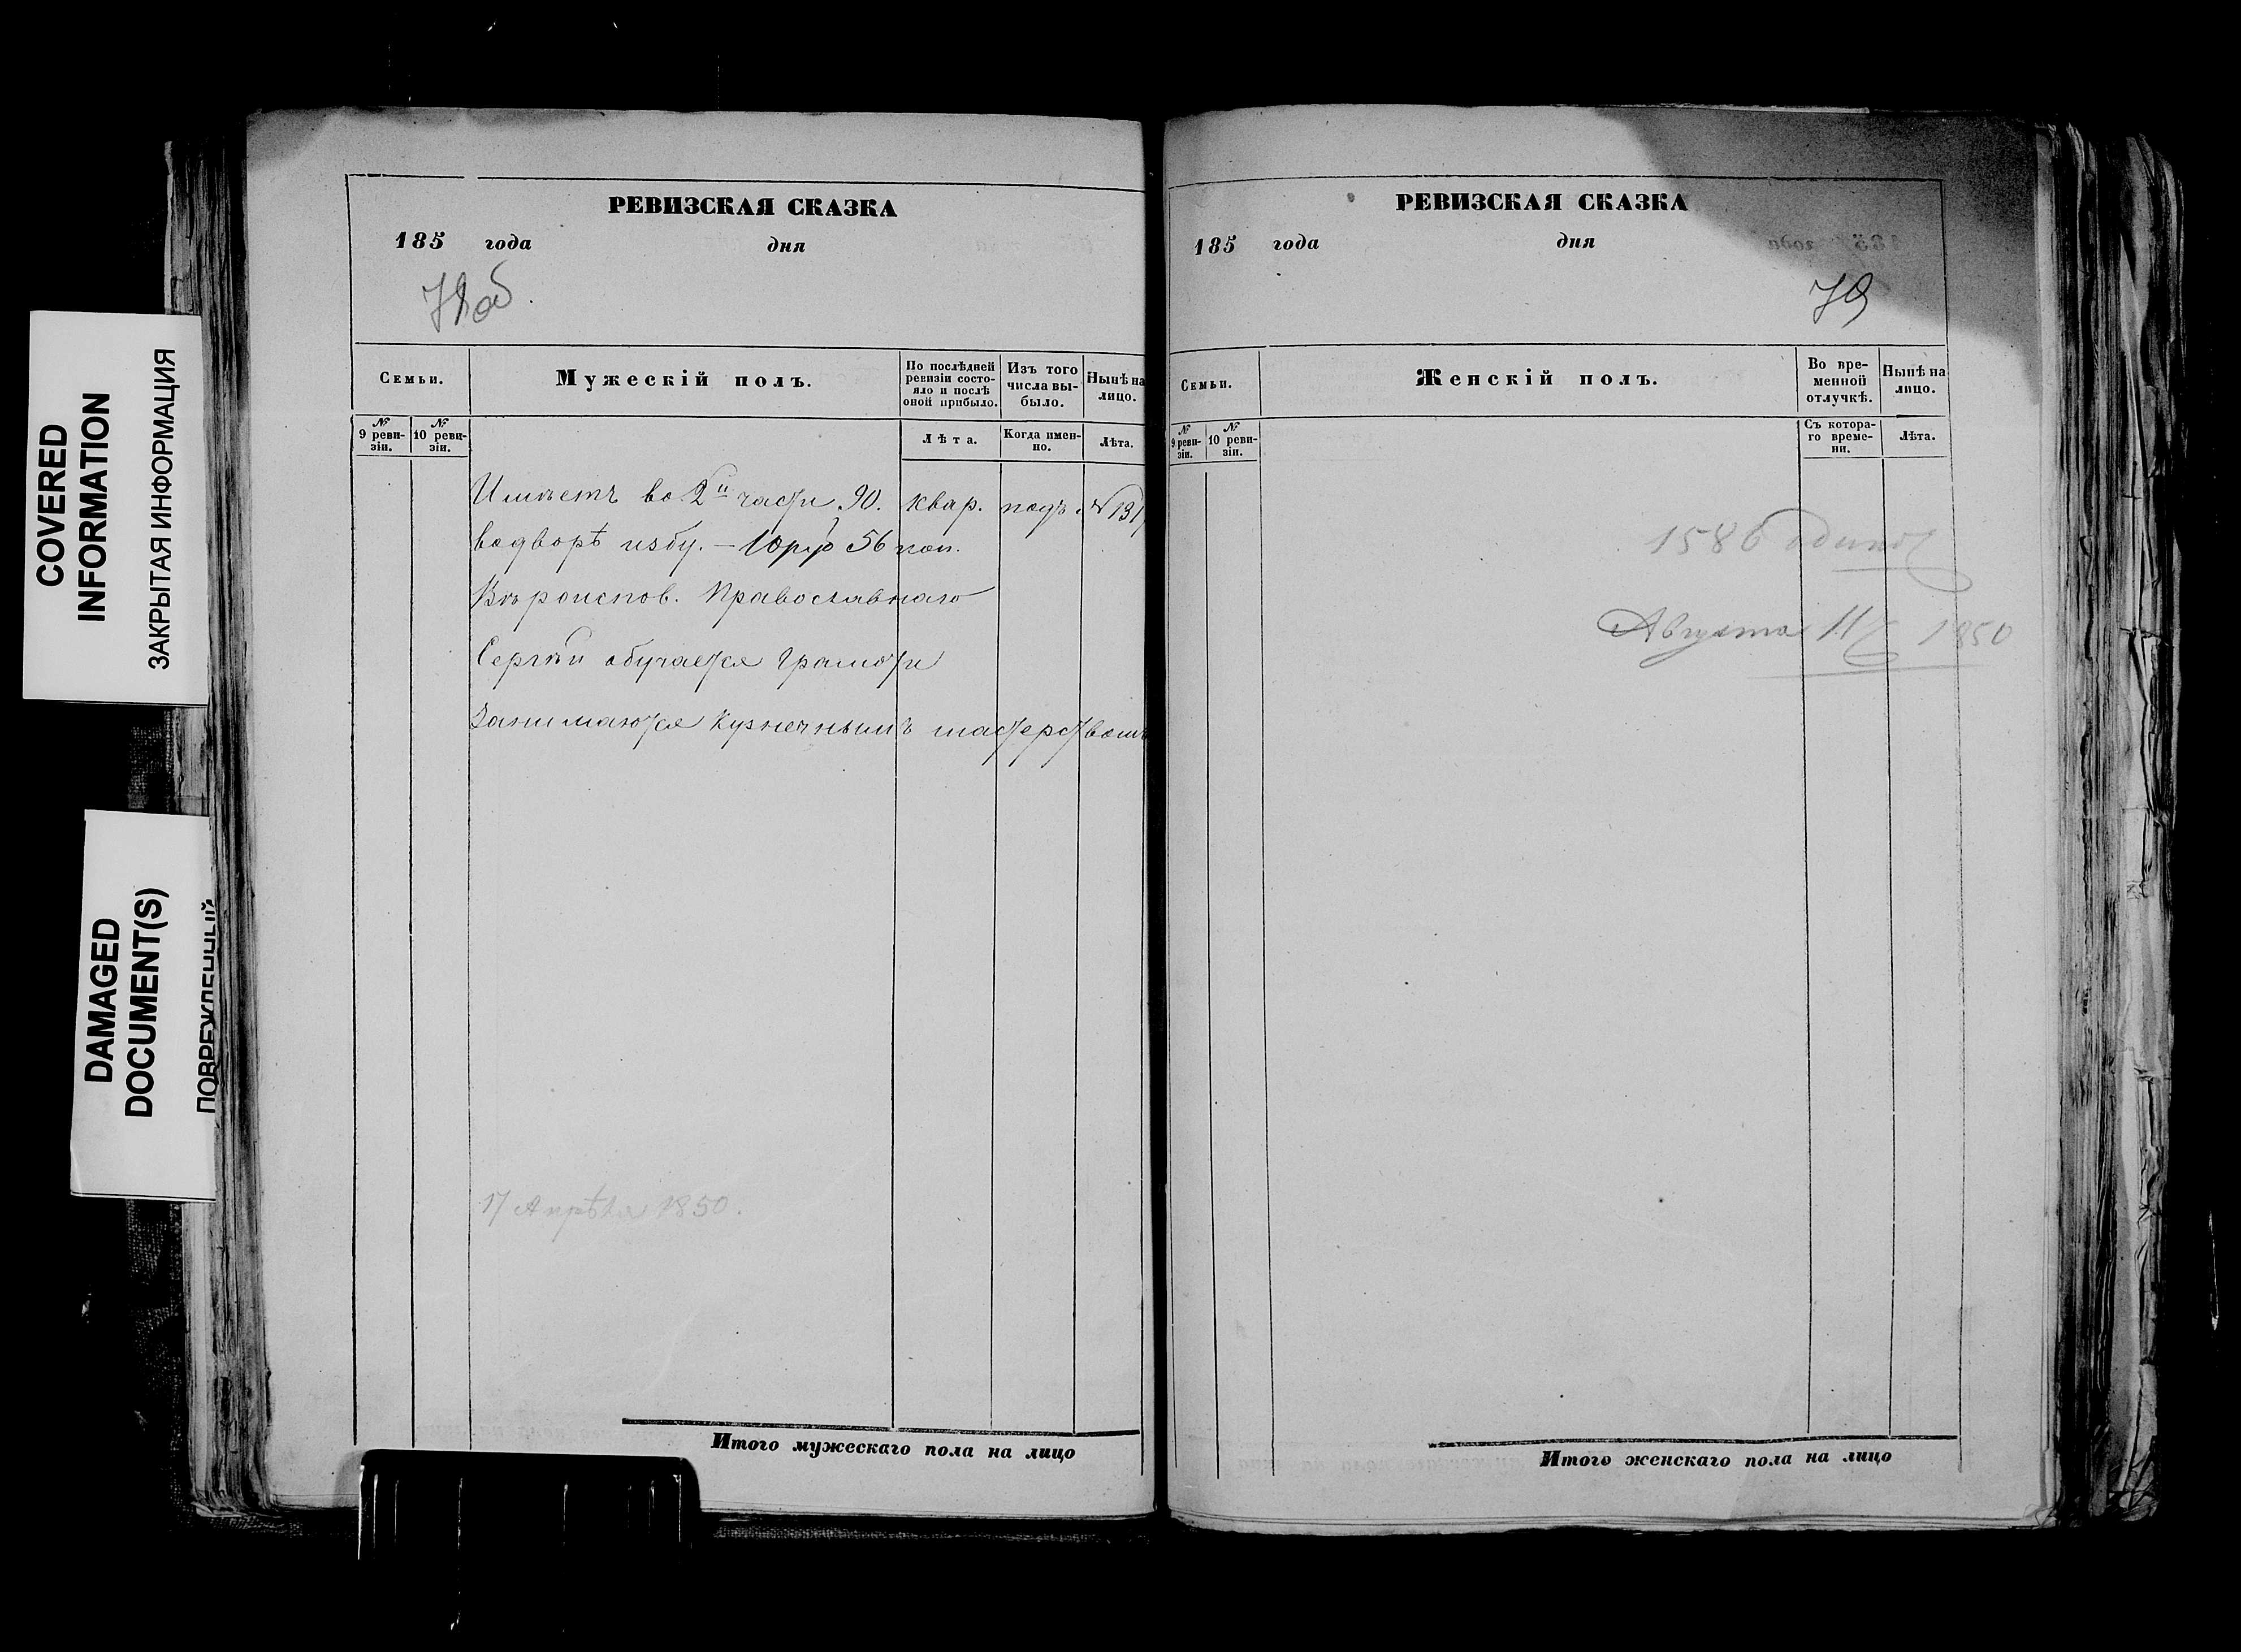 COVERED
INFORMATION
ЗАКРЫТАЯ ИНФОРМАЦИЯ
DAMAGED
DOCUMENT(S)
РЕВИЗСКАЯ СКАЗКА
185 года дня
Семьи.
Мужескій полъ.
По послѣдней ревизіи состояло и послѣ оной прибыло.
Изъ того числа выбыло.
Нынѣ на лицо.
№ 9 ревизіи.
№ 10 ревизіи.
Лѣта.
Когда именно.
Лѣта.
Имѣетъ во 2й части 90. квар. подъ №131
водворѣ избу. – 10 руб 56 коп.
Вѣроиспов. Православнаго
Сергѣй обучается грамоти
Занимаются Кузнечнымъ мастерствомъ
17 Апрѣля 1850.
Итого мужескаго пола на лицо
РЕВИЗСКАЯ СКАЗКА
185 года дня
79
Семьи.
Женскій полъ.
Во временной отлучкѣ.
Нынѣ на лицо.
№ 9 ревизіи.
№ 10 ревизіи.
Съ котораго времени.
Лѣта.
1586
Августа 11 1850
Итого женскаго пола на лицо